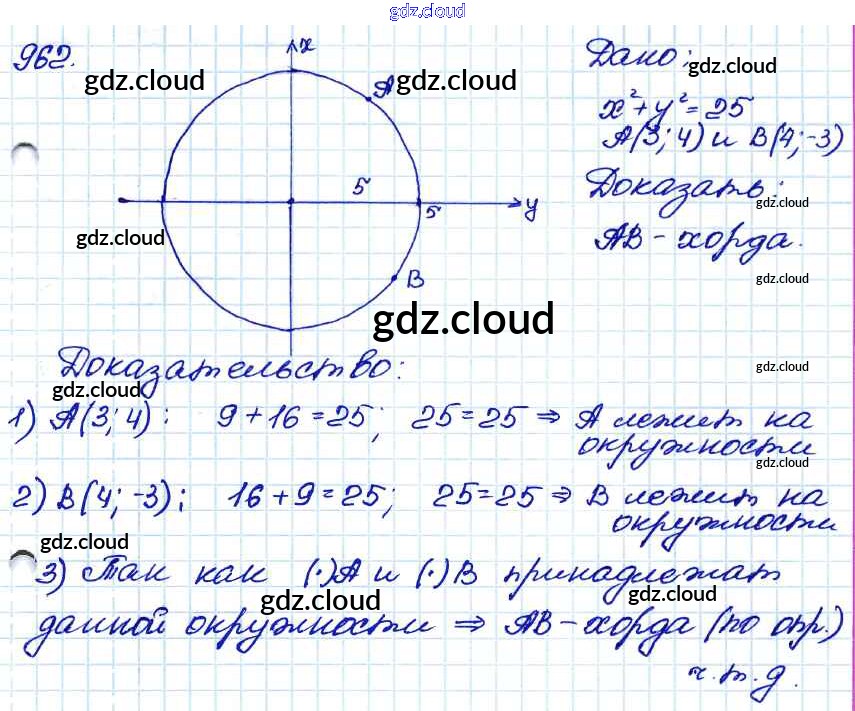 gdz.cloud
962.
x
Дано:
gdz.cloud
gdz.cloud
A
gdz.cloud
x²+y²=25
A(3;4) и B(4;-3)
5
5
y
Доказать:
gdz.cloud
gdz.cloud
AB - хорда.
B
gdz.cloud
gdz.cloud
Доказательство:
gdz.cloud
gdz.cloud
1) A(3;4): 9+16=25; 25=25 ⇒ A лежит на
окружности
gdz.cloud
2) B(4;-3); 16+9=25; 25=25 ⇒ B лежит на
окружности
gdz.cloud
gdz.cloud
3) Так как (·)A и (·)B принадлежат
gdz.cloud
gdz.cloud
данной окружности ⇒ AB - хорда (по опр.)
ч.т.д.